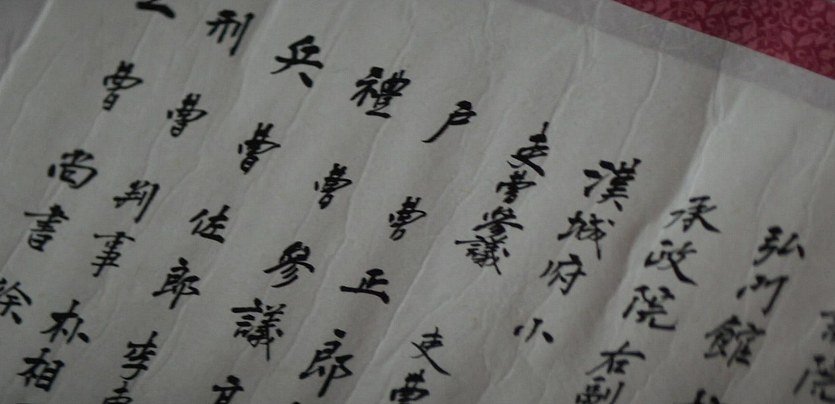 弘門館
承政院右副
漢城府小
吏曹參議 吏曹
戶曹正郎
禮曹參議
兵曹佐郎 李
刑曹判事 朴相
曹尚書 徐